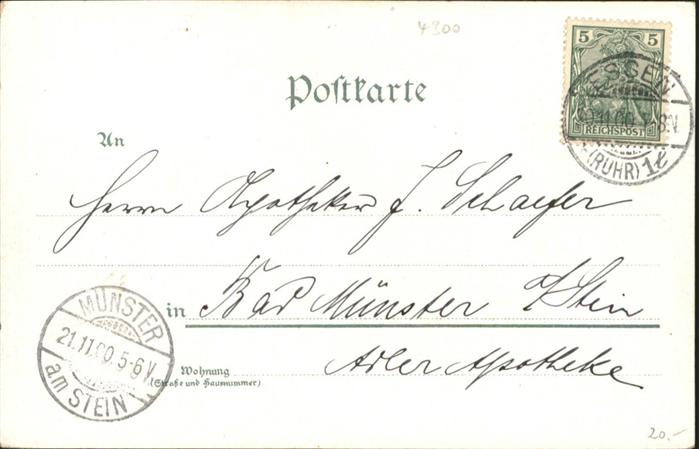 4300
5 5
REICHSPOST
ESSEN
11.00
8.V.
(RUHR) 1ℓ
Postkarte
An
Herrn Apotheker J. Schaefer
in Bad Münster a/Stein
Adler Apotheke
Wohnung
(Straße und Hausnummer)
MÜNSTER
21.11.00.5-6V
am STEIN
20.-